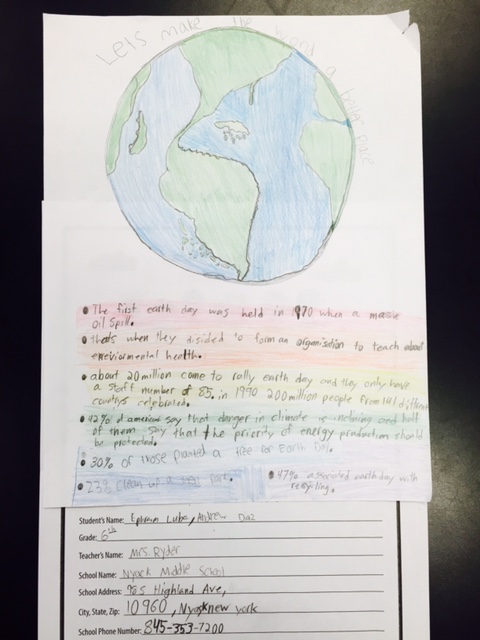 Lets make the word a better place
The first earth day was held in 1970 when a massie
oil spill.
thats when they disided to form an organisation to teach about
enviormental health.
about 20 million come to rally earth day and they only have
a staff number of 85. in 1990 200 million people from 141 different
countrys celebrated.
42% of america say that danger in climate is inclining and half
of them say that the priority of energy production should
be protected.
30% of those planted a tree for Earth Day.
23% clean up a park.
47% assosiated earth day with
recycling.
Student's Name: Ephraim Lube, Andrew Daz
Grade: 6th
Teacher's Name: Mrs. Ryder
School Name: Nyack Middle School
School Address: 965 Highland Ave,
City, State, Zip: 10960, Nyack new york
School Phone Number: 845-353-7200